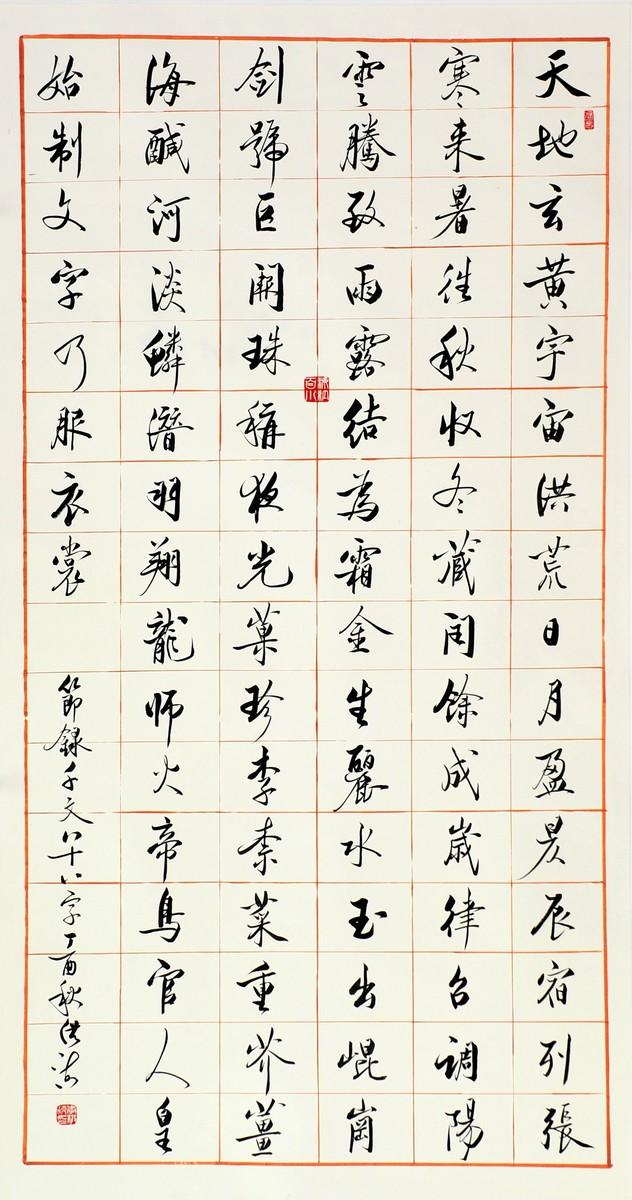 天地玄黃宇宙洪荒日月盈昃辰宿列張
寒来暑往秋收冬藏閏餘成歲律召調陽
雲騰致雨露結為霜金生麗水玉出崐崗
剑號巨闕珠稱夜光菓珍李柰菜重芥薑
海醎河淡鱗潛羽翔龍师火帝鳥官人皇
始制文字乃服衣裳
節録千文八十八字丁酉秋